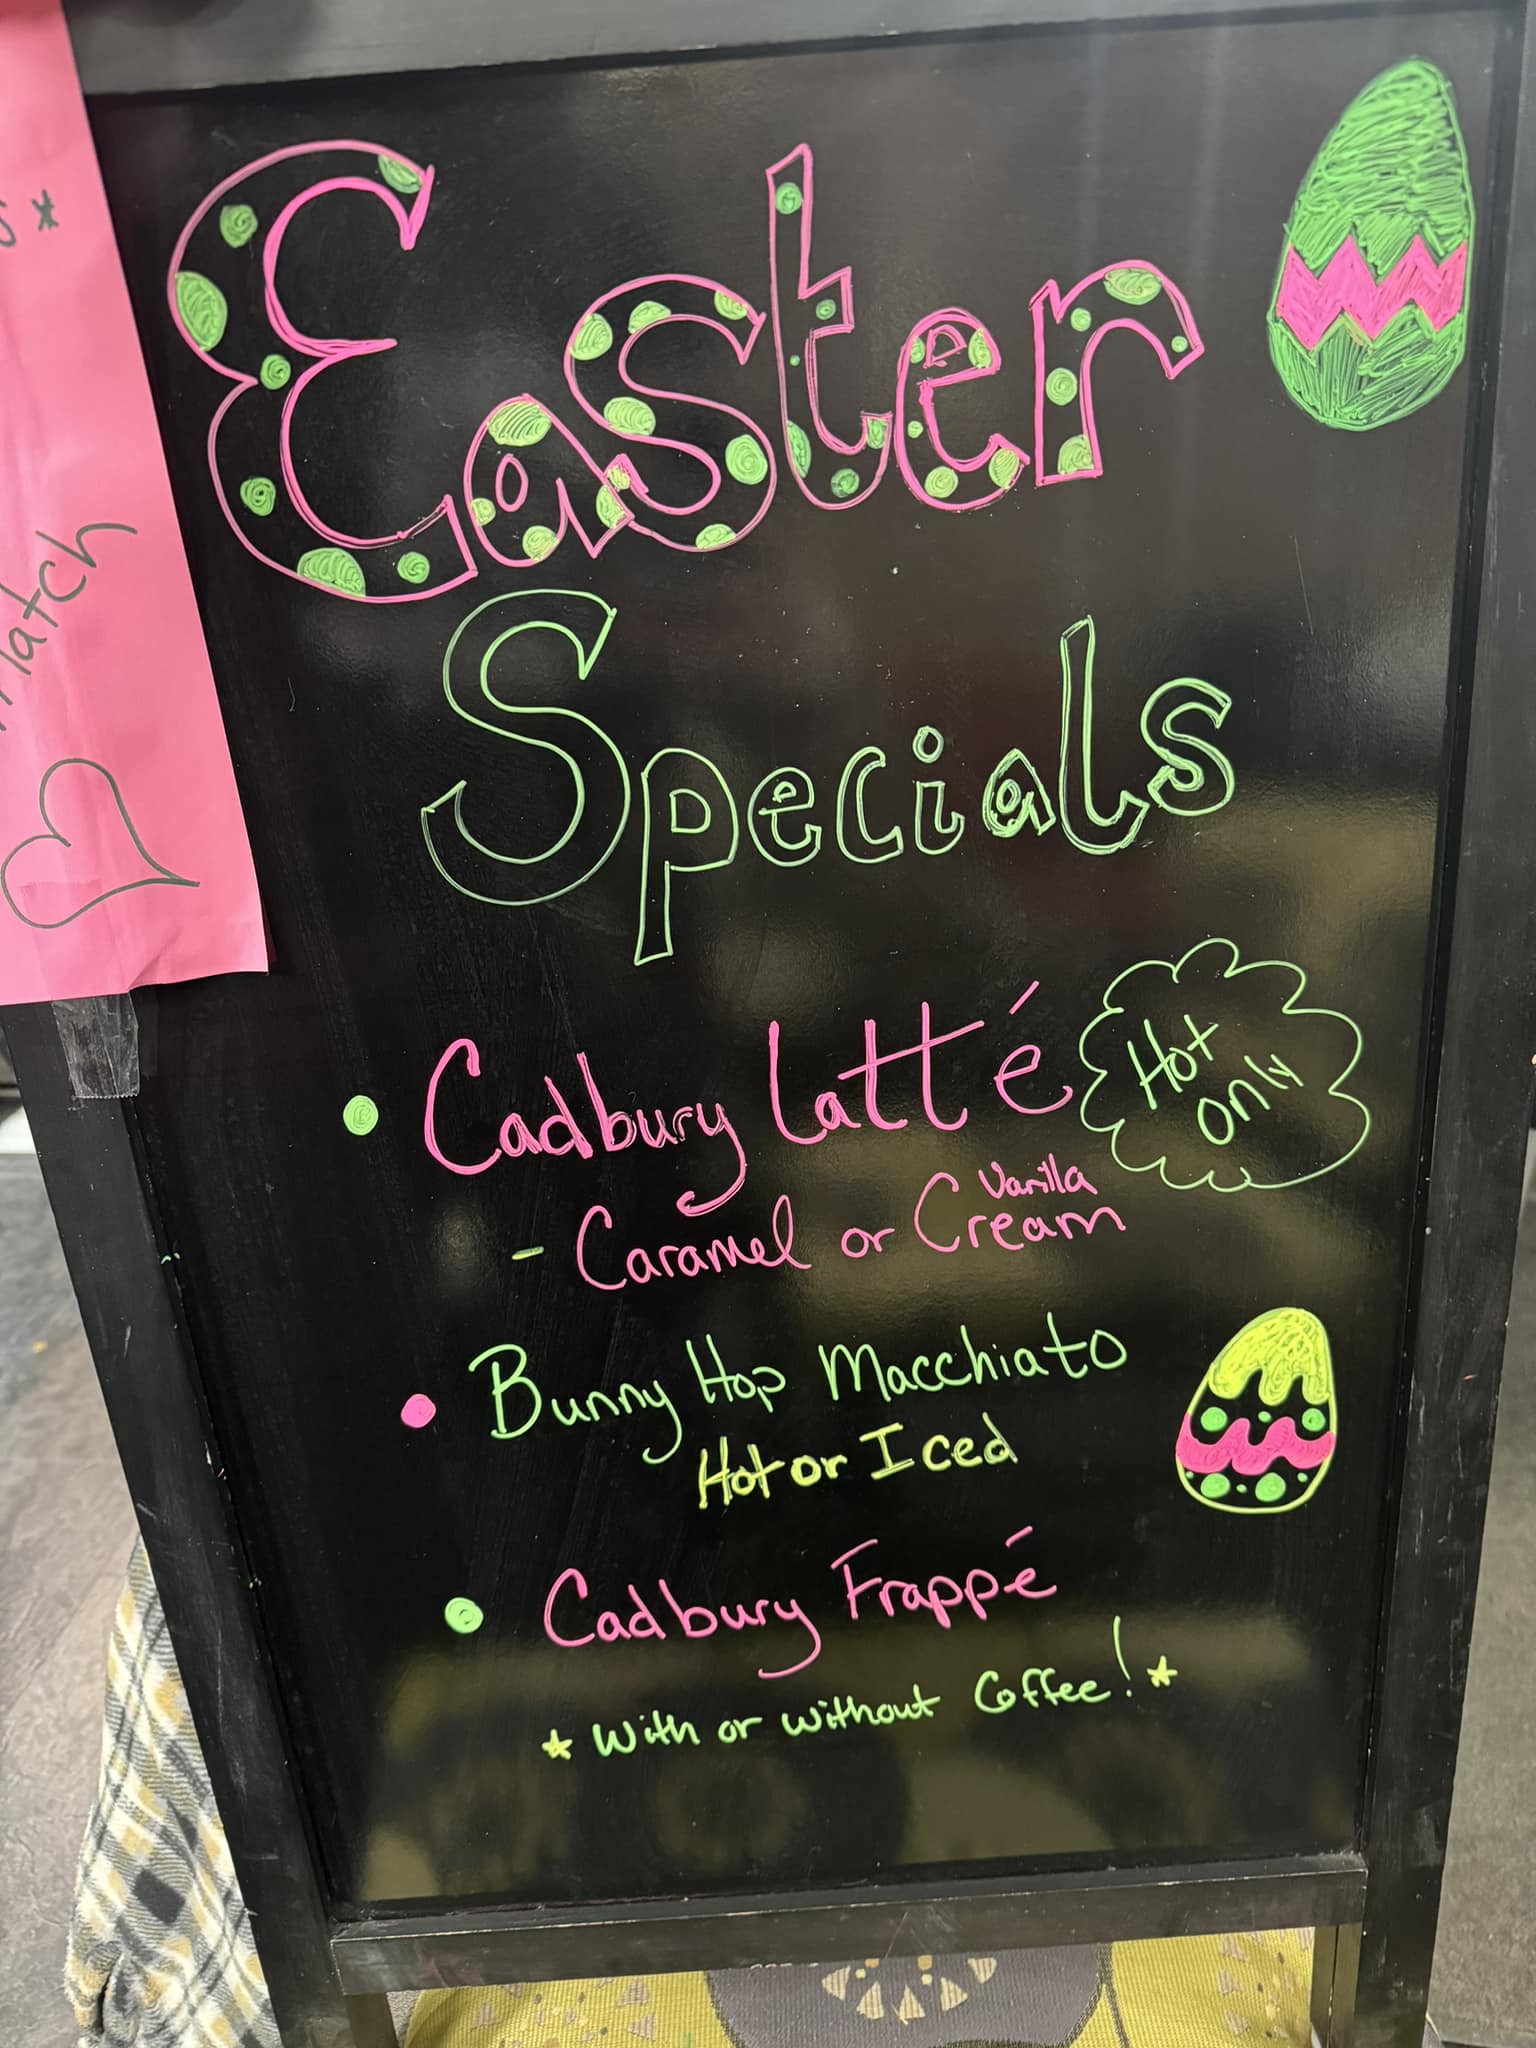 Easter
Specials
Cadbury Latté
Hot
only
- Caramel or Vanilla Cream
Bunny Hop Macchiato
Hot or Iced
Cadbury Frappé
* With or without Coffee! *